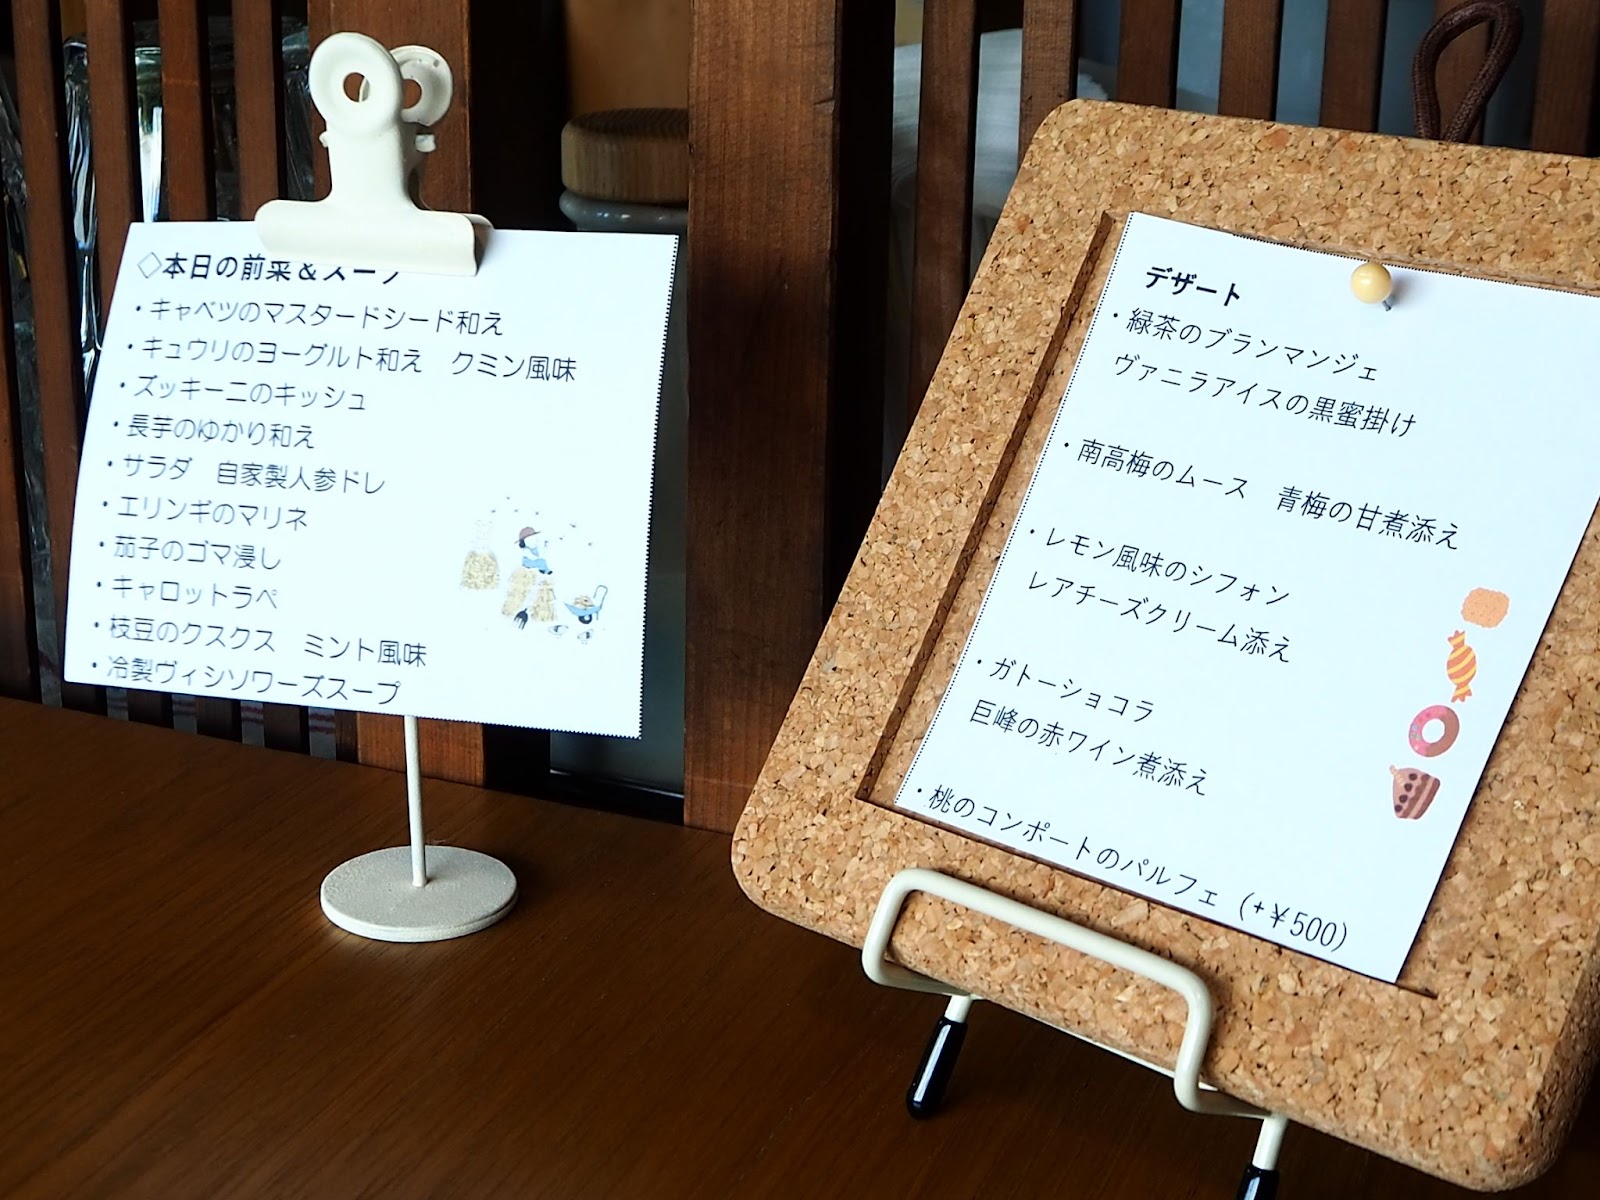 ◇本日の前菜＆スープ
・キャベツのマスタードシード和え
・キュウリのヨーグルト和え　クミン風味
・ズッキーニのキッシュ
・長芋のゆかり和え
・サラダ　自家製人参ドレ
・エリンギのマリネ
・茄子のゴマ浸し
・キャロットラペ
・枝豆のクスクス　ミント風味
・冷製ヴィシソワーズスープ
デザート
・緑茶のブランマンジェ
ヴァニラアイスの黒蜜掛け
・南高梅のムース　青梅の甘煮添え
・レモン風味のシフォン
レアチーズクリーム添え
・ガトーショコラ
巨峰の赤ワイン煮添え
・桃のコンポートのパルフェ（+￥500）